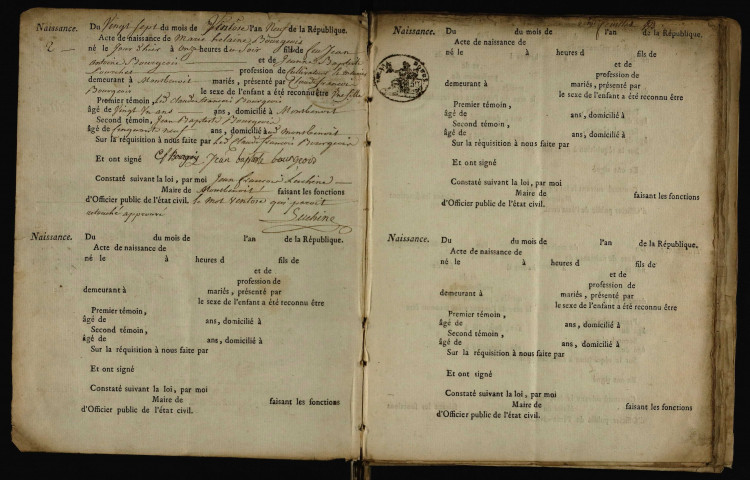 Naissance. Du Vingt sept du mois de Ventose l'an Neuf de la République.
2 Acte de naissance de Marie helaine Bourgeois
né le Jour d'hier à onze heures du Soir fils de Jean
antoine Bourgeois et de Jeanne Baptiste
profession de Cultivateur
demeurant à Montlenoit mariés, présenté par Claude francois
Bourgeois le sexe de l'enfant a été reconnu être fille
Premier témoin, Led Claude francois Bourgeois
âgé de Vingt ans, domicilié à Montlenoit
Second témoin, Jean Baptiste Bourgeois
âgé de Cinquante neuf ans, domicilié à Montlenoit
Sur la réquisition à nous faite par Led Claude francois Bourgeois
Et ont signé Bourgois Jean baptiste bourgeois
Constaté suivant la loi, par moi Jean francois
Maire de Montlenoit faisant les fonctions
d'Officier public de l'état civil. le mot ventose qui parait
approuvé
Naissance. Du du mois de l'an de la République.
Acte de naissance de
né le à heures d fils de
et de
profession de
demeurant à mariés, présenté par
le sexe de l'enfant a été reconnu être
Premier témoin,
âgé de ans, domicilié à
Second témoin,
âgé de ans, domicilié à
Sur la réquisition à nous faite par
Et ont signé
Constaté suivant la loi, par moi
Maire de faisant les fonctions
d'Officier public de l'état civil.
Naissance. Du du mois de l'an de la République.
Acte de naissance de
né le à heures d fils de
et de
profession de
demeurant à mariés, présenté par
le sexe de l'enfant a été reconnu être
Premier témoin,
âgé de ans, domicilié à
Second témoin,
âgé de ans, domicilié à
Sur la réquisition à nous faite par
Et ont signé
Constaté suivant la loi, par moi
Maire de faisant les fonctions
d'Officier public de l'état civil.
Naissance. Du du mois de l'an de la République.
Acte de naissance de
né le à heures d fils de
et de
profession de
demeurant à mariés, présenté par
le sexe de l'enfant a été reconnu être
Premier témoin,
âgé de ans, domicilié à
Second témoin,
âgé de ans, domicilié à
Sur la réquisition à nous faite par
Et ont signé
Constaté suivant la loi, par moi
Maire de faisant les fonctions
d'Officier public de l'état civil.